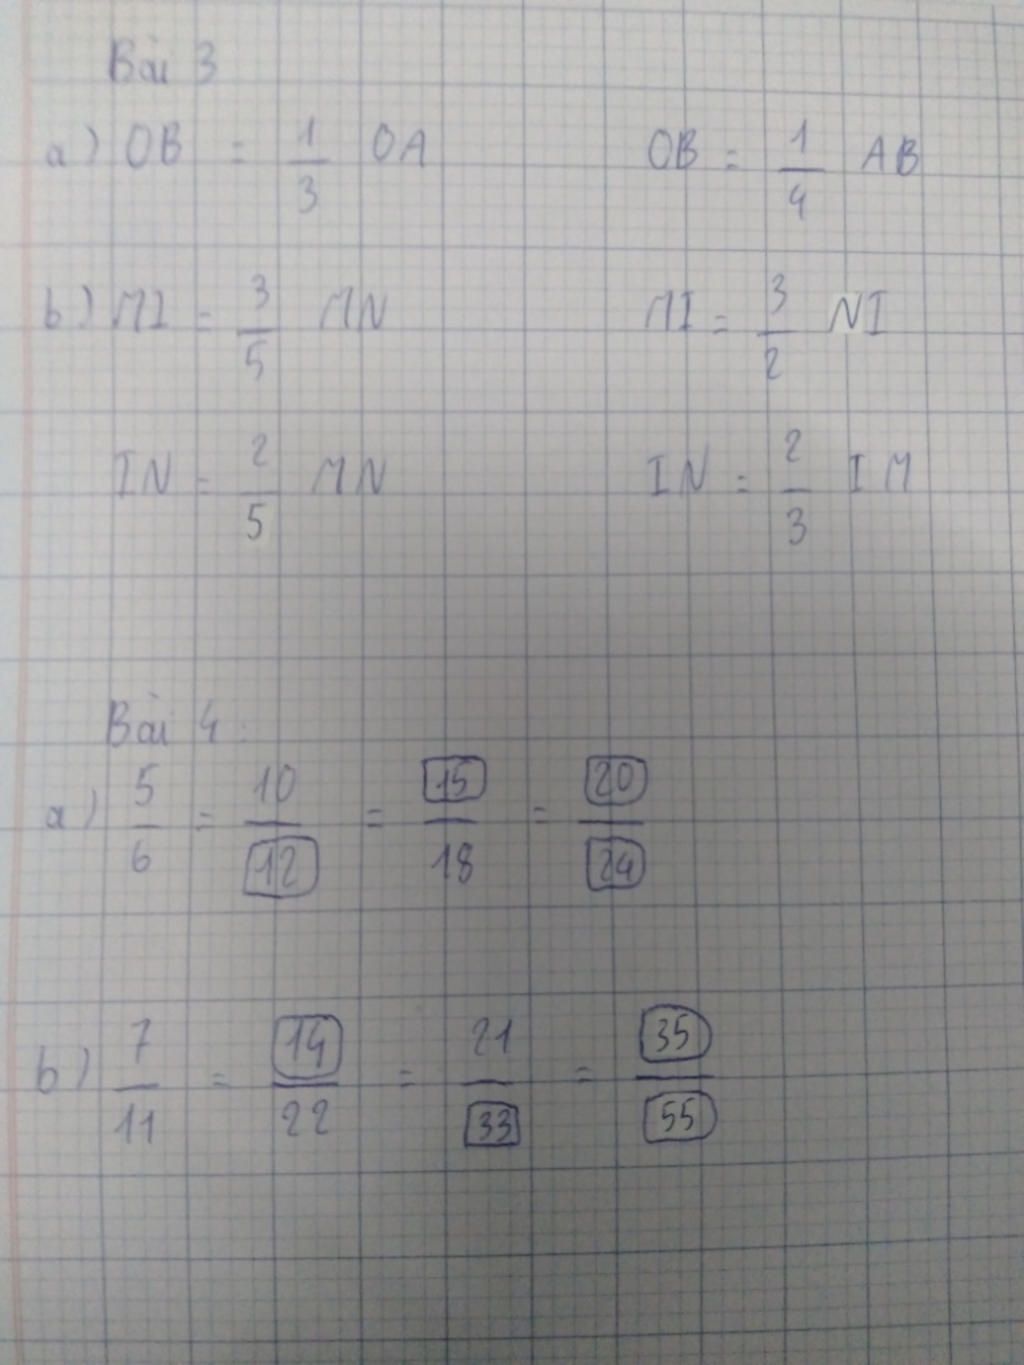 Bài 3
a) OB = 1/3 OA OB = 1/4 AB
b) MI = 3/5 MN MI = 3/2 NI
IN = 2/5 MN IN = 2/3 IM
Bài 4:
a) 5/6 = 10/12 = 15/18 = 20/24
b) 7/11 = 14/22 = 21/33 = 35/55